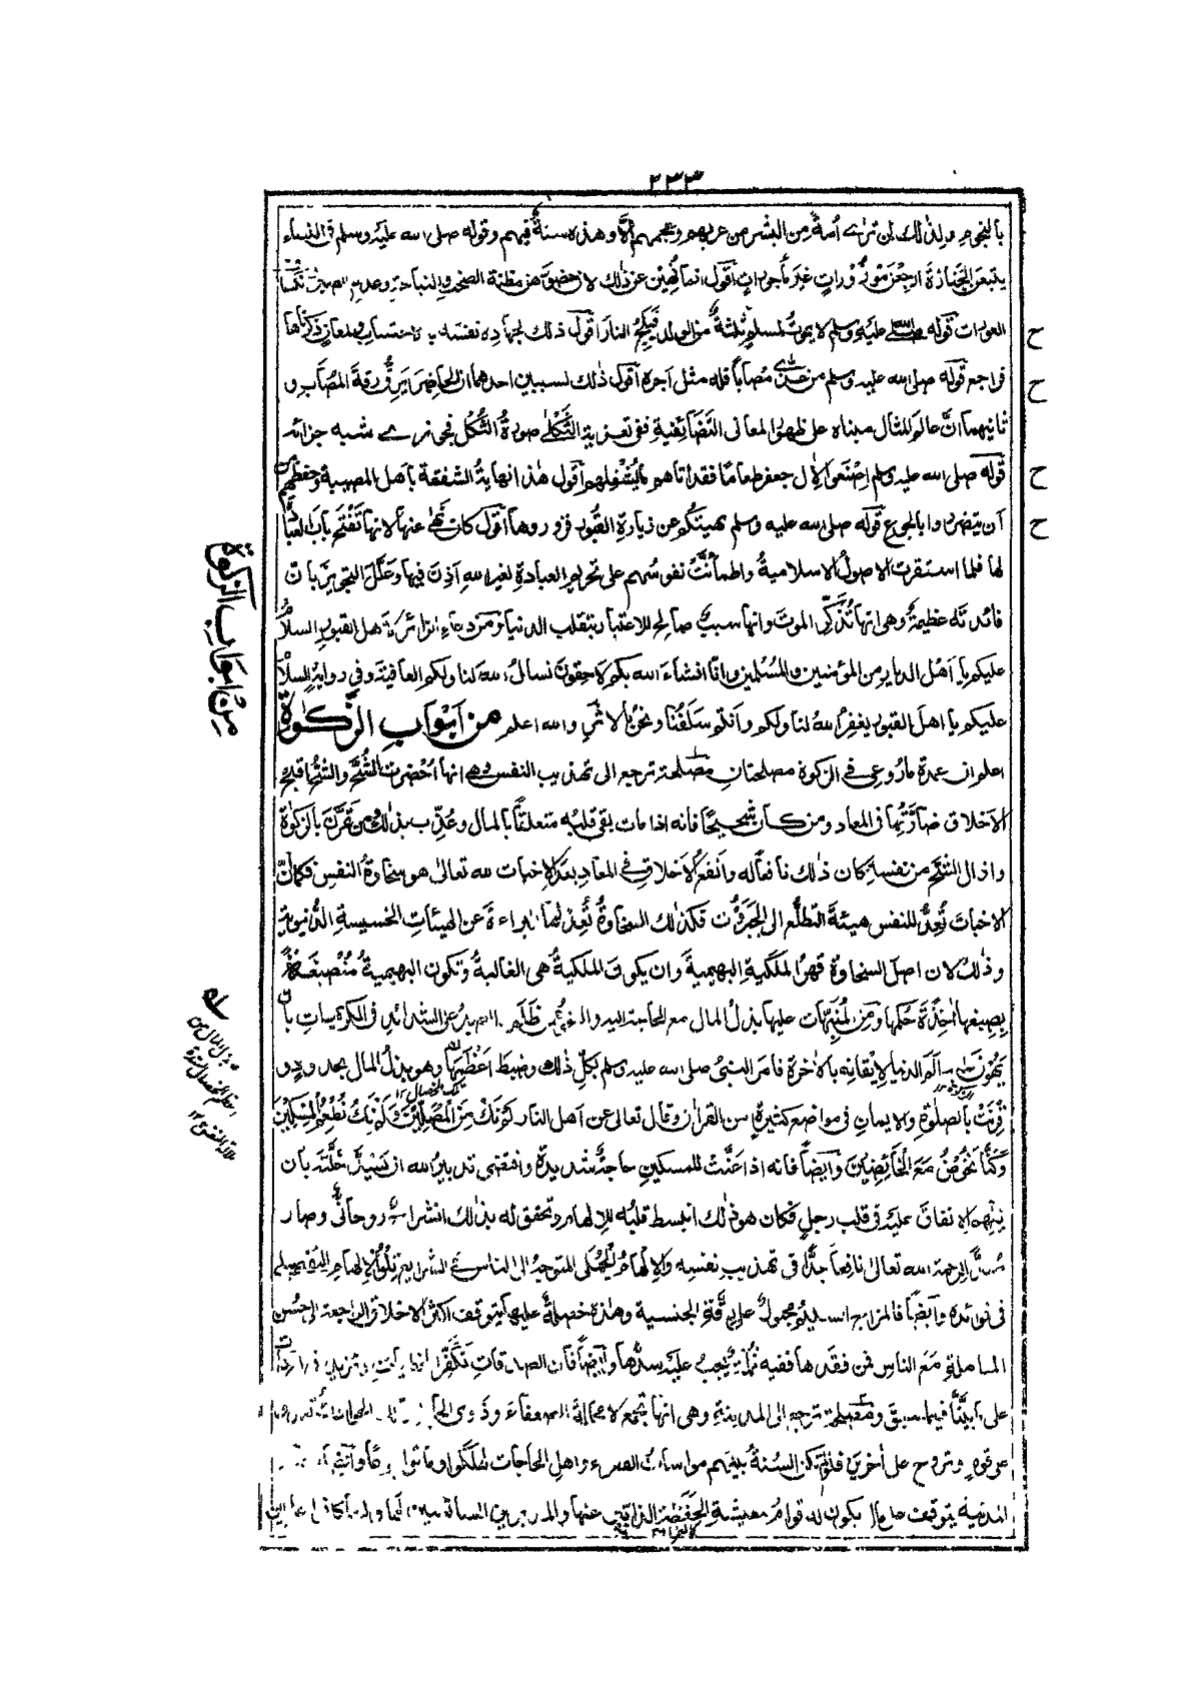 ٢٣٣
بالنجوم ولذلك لن ترى امة من البشر من عربهم وعجمهم الا وهذه سنة فيهم وقوله صلى الله عليه وسلم فى النساء
يتبعن الجنازة ارجعن موزورات غير مأجورات اقول انما نهين عن ذلك لان حضورهن مظنة الصخب والنياحة وعدم الصبر وانكشاف
العورات قوله صلى الله عليه وسلم لا يموت لمسلم ثلثة من الولد فيلج النار اقول ذلك لجهاده نفسه بالاحتساب ولمعان ذكرناها
فراجع قوله صلى الله عليه وسلم من عزى مصابا فله مثل اجره اقول ذلك لسببين احدهما ان الحاضر يرق رقة المصاب و
ثانيهما ان عالم المثال مبناه على ظهور المعانى التضايفية ففى تعزية الثكلى صورة الثكل فجوزى شبه جزائه
قوله صلى الله عليه وسلم اصنعوا لآل جعفر طعاما فقد اتاهم ما يشغلهم اقول هذا نهاية الشفقة باهل المصيبة وحفظهم من
ان يتضرروا بالجوع قوله صلى الله عليه وسلم نهيتكم عن زيارة القبور فزوروها اقول كان نهى عنها لانها تفتح باب العبادة
لها فلما استقرت الاصول الاسلامية واطمأنت نفوسهم على تحريم العبادة لغير الله اذن فيها وعلل التجويز بان
فائدته عظيمة وهى انها تذكر الموت وانها سبب صالح للاعتبار بتقلب الدنيا ومن دعاء الزائر لاهل القبور السلام
عليكم يا اهل الديار من المؤمنين والمسلمين وانا انشاء الله بكم لاحقون نسال الله لنا ولكم العافية وفى رواية السلام
عليكم يا اهل القبور يغفر الله لنا ولكم وانتم سلفنا ونحن بالاثر والله اعلم من ابواب الزكوة
اعلم ان عمدة ما روعى فى الزكوة مصلحتان مصلحة ترجع الى تهذيب النفس وهى انها احضرت الشح والشح اقبح
الاخلاق ضار بها فى المعاد ومن كان شحيحا فانه اذا مات بقى قلبه متعلقا بالمال وعذب بذلك ومن تمرن بالزكوة
وازال الشح من نفسه كان ذلك نافعا له وانفع الاخلاق فى المعاد بعد الاخبات لله تعالى هو سخاوة النفس فكما ان
الاخبات تعد للنفس هيئة التطلع الى الجبروت فكذلك السخاوة تعد لها البراءة عن الهيئات الخسيسة الدنيوية
وذلك لان اصل السخاوة قهر الملكية البهيمية وان يكون الملكية هى الغالبة وتكون البهيمية منصبغة
بصبغها آخذة حكمها ومن المنبهات عليها بذل المال مع الحاجة اليه والعفو عمن ظلم والصبر على الشدائد فى الكريهات بان
يهون الم الدنيا لايقانه بالآخرة فامر النبى صلى الله عليه وسلم بكل ذلك وضبط اعظمها وهو بذل المال بحدود
قرنت بالصلوة والايمان فى مواضع كثيرة من القرآن وقال تعالى عن اهل النار لم نك من المصلين ولم نك نطعم المسكين
وكنا نخوض مع الخائضين وايضا فانه اذا عنت للمسكين حاجة شديدة واقتضى تدبير الله ان يسد خلته بان
يلهم الانفاق عليه فى قلب رجل فكان هو ذلك انبسط قلبه للالهام وتحقق له بذلك انشراح روحانى وصار
معدا لرحمة الله تعالى نافعا جدا فى تهذيب نفسه والالهام الجملى المتوجه الى الناس فى الشرائع تلو الالهام التفصيلى
فى فوائده وايضا فالمزاج السليم مجبول على رقة الجنسية وهذه خصلة عليها يتوقف اكثر الاخلاق الراجعة الى حسن
المعاملة مع الناس فمن فقدها ففيه ثلمة يجب عليه سدها وايضا فان الصدقات تكفر الخطيئات وتزيد فى البركات
على ما بينا فيما سبق ومصلحة ترجع الى المدينة وهى انها تجمع لا محالة الضعفاء وذوى الحاجة وتلك الحوادث تغدو
على قوم وتروح على آخرين فلو لم تكن السنة بينهم مواساة الفقراء واهل الحاجات لهلكوا وماتوا جوعا وايضا
المدينة يتوقف على مال يكون به قوام معيشة الحفظة الذابين عنها والمدبرين السائسين لها ولما كانوا عاملين
ح
ح
ح
ح
من ابواب الزكوة